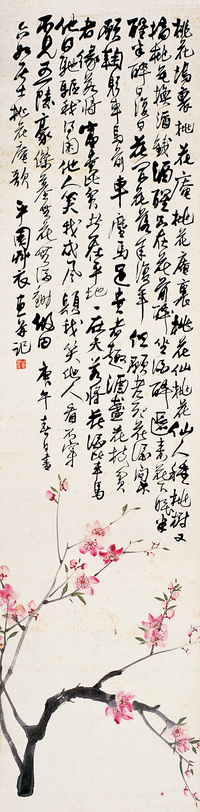 桃花塢裏桃花庵桃花庵裏桃花仙桃花仙人種桃樹又
摘桃花換酒錢酒醒只在花前坐酒醉還來花下眠半
醒半醉日復日花開花落年復年但願老死花酒間不
願鞠躬車馬前車塵馬足貴者趣酒盞花枝貧
者緣若將富貴比貧者一在平地一在天若將花酒比車馬
他得驅馳我得閒他人笑我忒風顛我笑他人看不穿
不見五陵豪傑墓無花無酒鋤做田 庚午
六如居士桃花庵歌